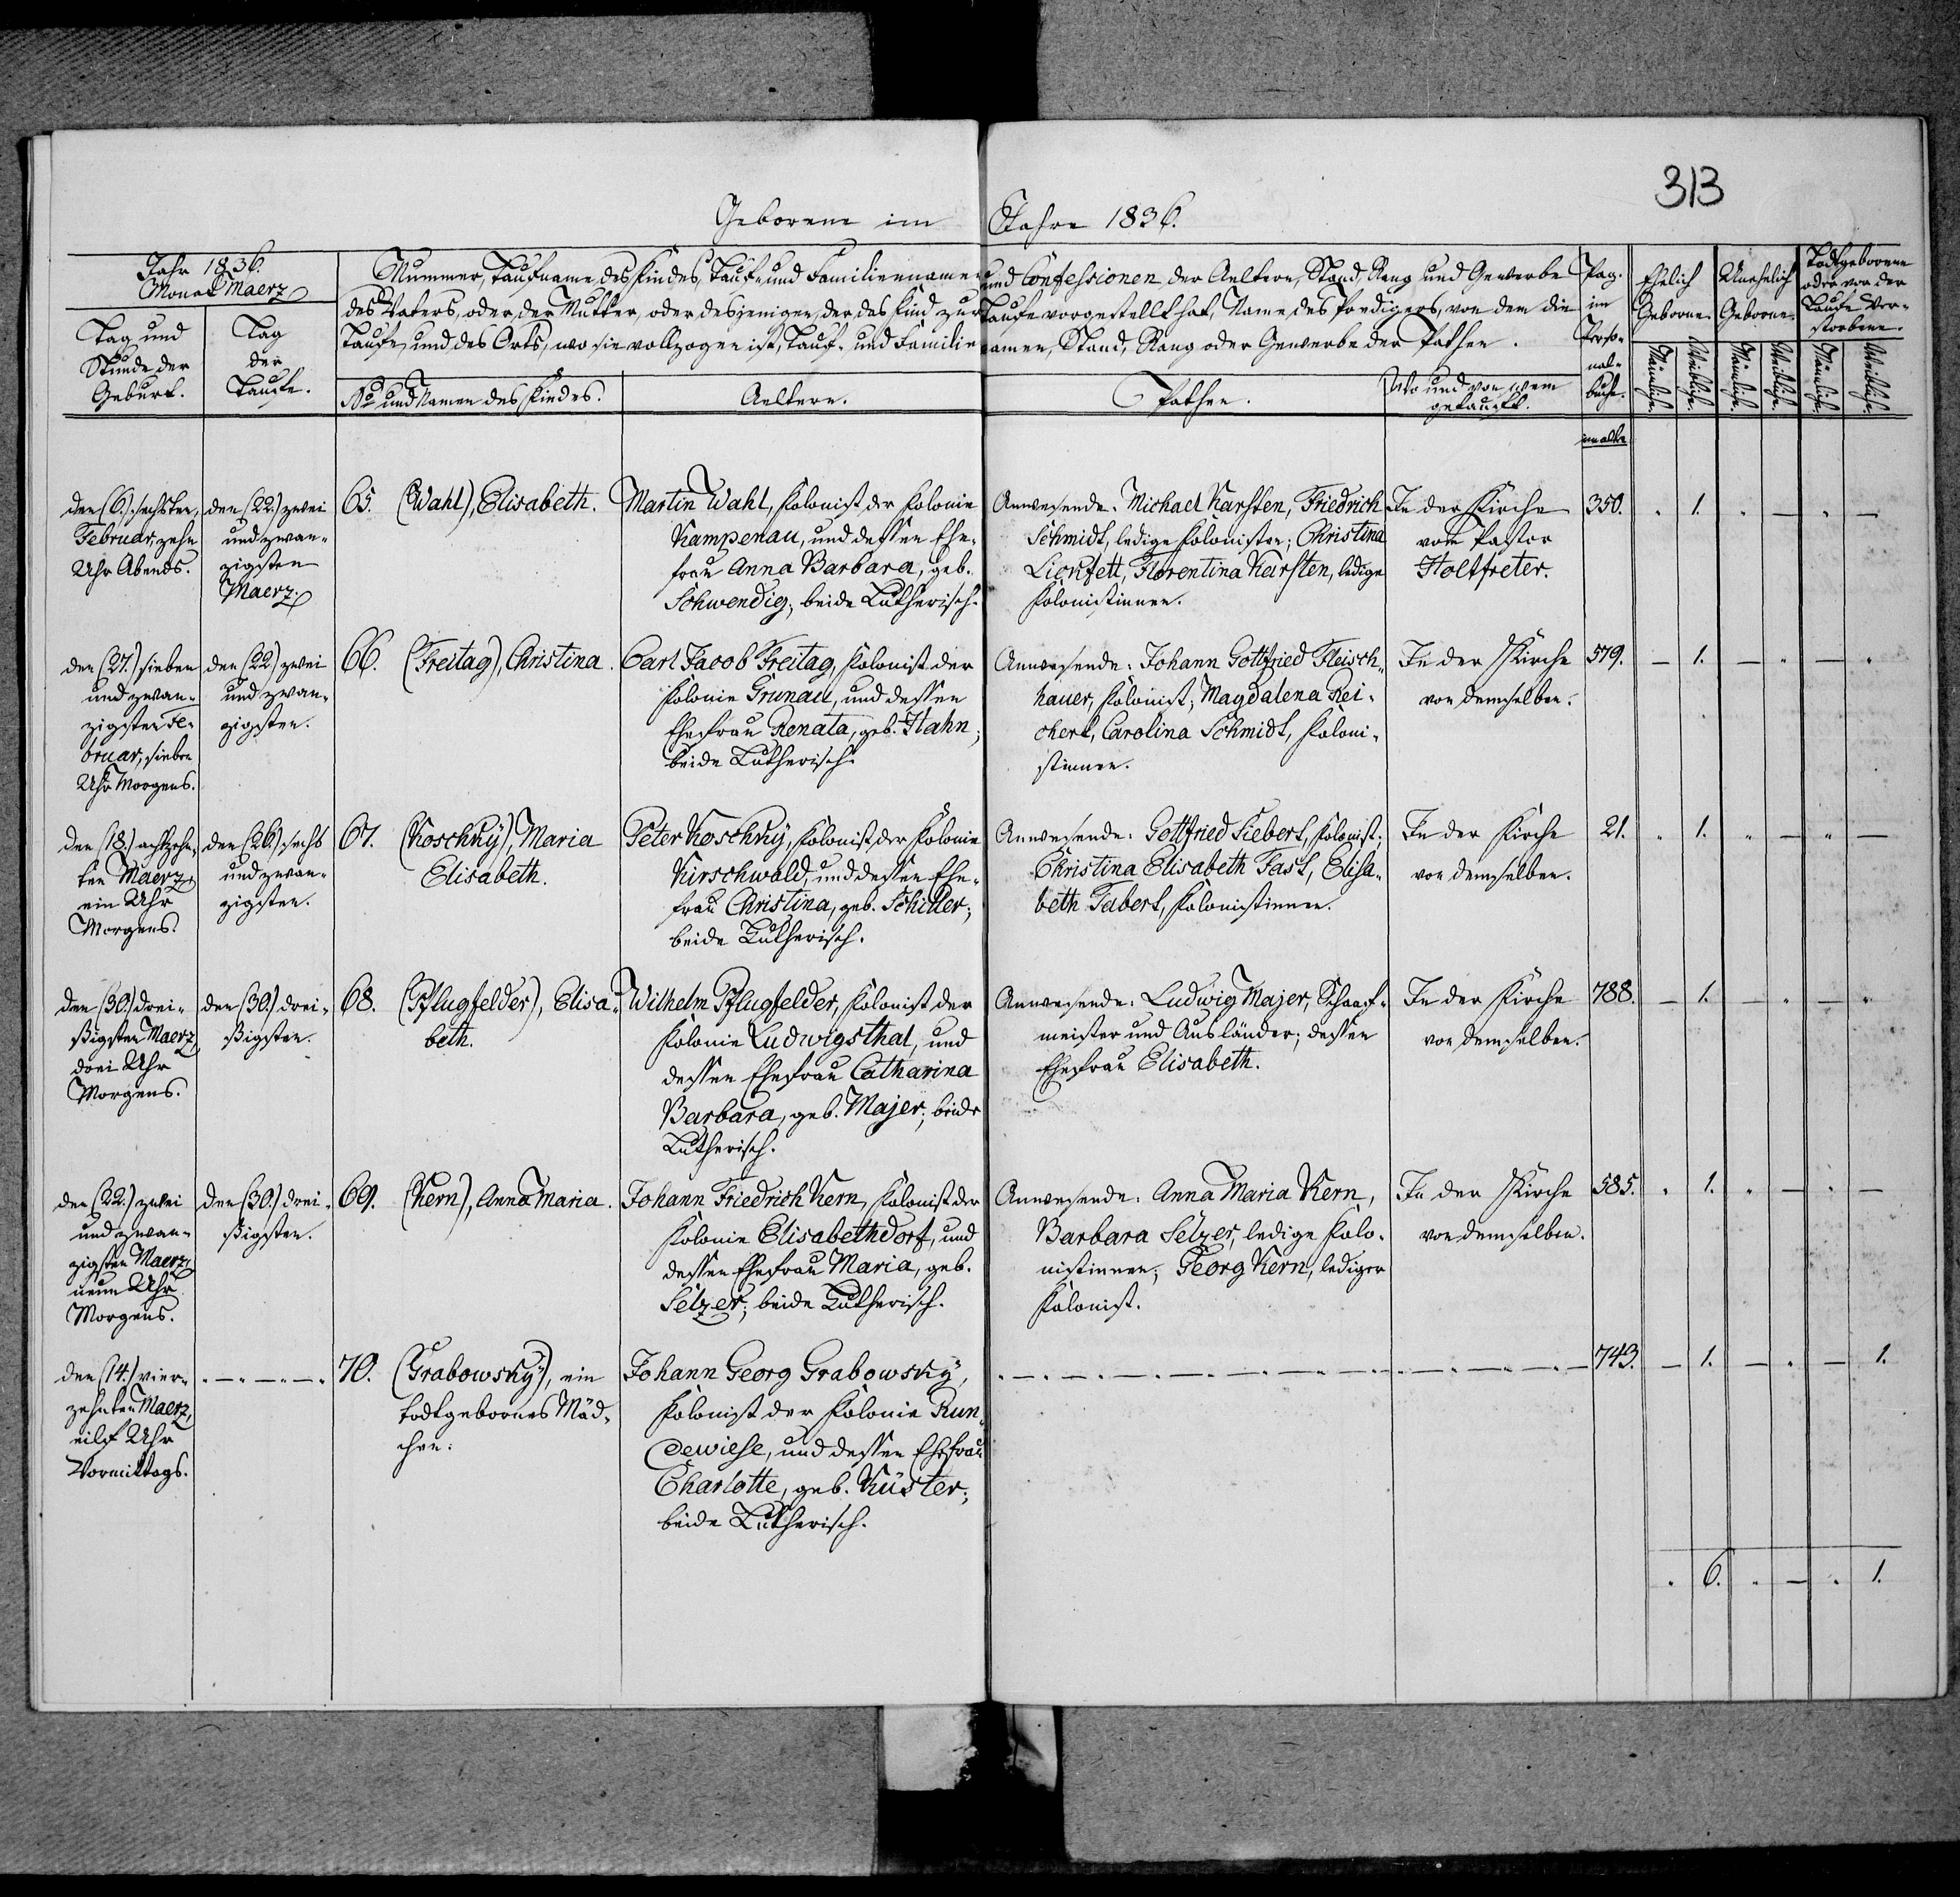 313
Geborene im Jahre 1836.
Jahr 1836.
Monat Maerz
Tag und
Stunde der
Geburt.
Tag
der
Taufe.
Nummer, Taufname des Kindes, Tauf- und Familiennamen und Confessionen der Aeltern, Stand, Rang und Gewerbe
des Vaters, oder der Mutter, oder desjenigen, der das Kind zur Taufe vorgestellt hat, Name des Predigers, von dem die
Taufe, und des Orts, wo sie vollzogen ist, Tauf- und Familiennamen, Stand, Rang oder Gewerbe der Pathen.
No und Namen des Kindes.
Aeltern.
Pathen.
Wo und von wem
getauft.
Pag.
im
Perso-
nal-
buche.
Ehelich
Geborne.
Unehelich
Geborne.
Todtgeborene
oder vor der
Taufe Ver-
storbene.
Männliche.
Weibliche.
Männliche.
Weibliche.
Männliche.
Weibliche.
im alten
den (6.) sechsten
Februar, zehn
Uhr Abends.
den (22.) zwei
und zwan-
zigsten
Maerz.
65.
(Wahl), Elisabeth.
Martin Wahl, Kolonist der Kolonie
Kampenau, und dessen Ehe-
frau Anna Barbara, geb.
Schwendig; beide Lutherisch.
Anwesende: Michael Karsten, Friedrich
Schmidt, ledige Kolonisten; Christina
Lickfett, Florentina Karsten, ledige
Kolonistinnen.
In der Kirche
vom Pastor
Holtfreter.
350.
1.
den (27.) sieben
und zwan-
zigsten Fe-
bruar, sieben
Uhr Morgens.
den (22.) zwei
und zwan-
zigsten.
66.
(Freitag), Christina.
Carl Jacob Freitag, Kolonist der
Kolonie Grunau, und dessen
Ehefrau Renata, geb. Hahn;
beide Lutherisch.
Anwesende: Johann Gottfried Fleisch-
hauer, Kolonist; Magdalena Rei-
chert, Carolina Schmidt, Koloni-
stinnen.
In der Kirche
von demselben.
579.
1.
den (18.) achtzehn-
ten Maerz,
ein Uhr
Morgens.
den (26.) sechs
und zwan-
zigsten.
67.
(Koschky), Maria
Elisabeth.
Peter Koschky, Kolonist der Kolonie
Kirschwald, und dessen Ehe-
frau Christina, geb. Schiller;
beide Lutherisch.
Anwesende: Gottfried Siebert, Kolonist;
Christina Elisabeth Fast, Elisa-
beth Tabert, Kolonistinnen.
In der Kirche
von demselben.
21.
1.
den (30.) drei-
ßigsten Maerz,
drei Uhr
Morgens.
den (30.) drei-
ßigsten.
68.
(Pflugfelder), Elisa-
beth.
Wilhelm Pflugfelder, Kolonist der
Kolonie Ludwigsthal, und
dessen Ehefrau Catharina
Barbara, geb. Majer; beide
Lutherisch.
Anwesende: Ludwig Majer, Schaaf-
meister und Ausländer; dessen
Ehefrau Elisabeth.
In der Kirche
von demselben.
788.
1.
den (22.) zwei
und zwan-
zigsten Maerz,
neun Uhr
Morgens.
den (30.) drei-
ßigsten.
69.
(Kern), Anna Maria.
Johann Friedrich Kern, Kolonist der
Kolonie Elisabethdorf, und
dessen Ehefrau Maria, geb.
Selzer; beide Lutherisch.
Anwesende: Anna Maria Kern,
Barbara Selzer, ledige Kolo-
nistinnen; Georg Kern, lediger
Kolonist.
In der Kirche
von demselben.
585.
1.
den (14.) vier-
zehnten Maerz,
eilf Uhr
Vormittags.
70.
(Grabowsky), ein
todtgebornes Mäd-
chen.
Johann Georg Grabowsky,
Kolonist der Kolonie Run-
dewiese, und dessen Ehefrau
Charlotte, geb. Küster;
beide Lutherisch.
743.
1.
1.
6.
1.